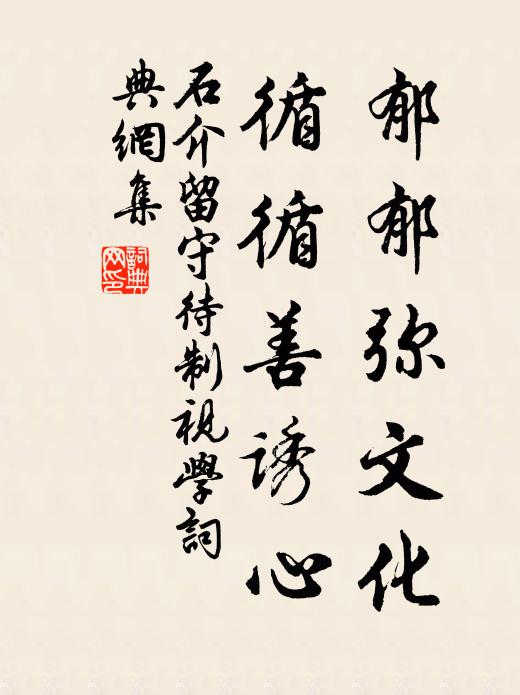 郁郁弥文化
循循善诱心
石介留守待制視學詞
典網集
詞典
网印